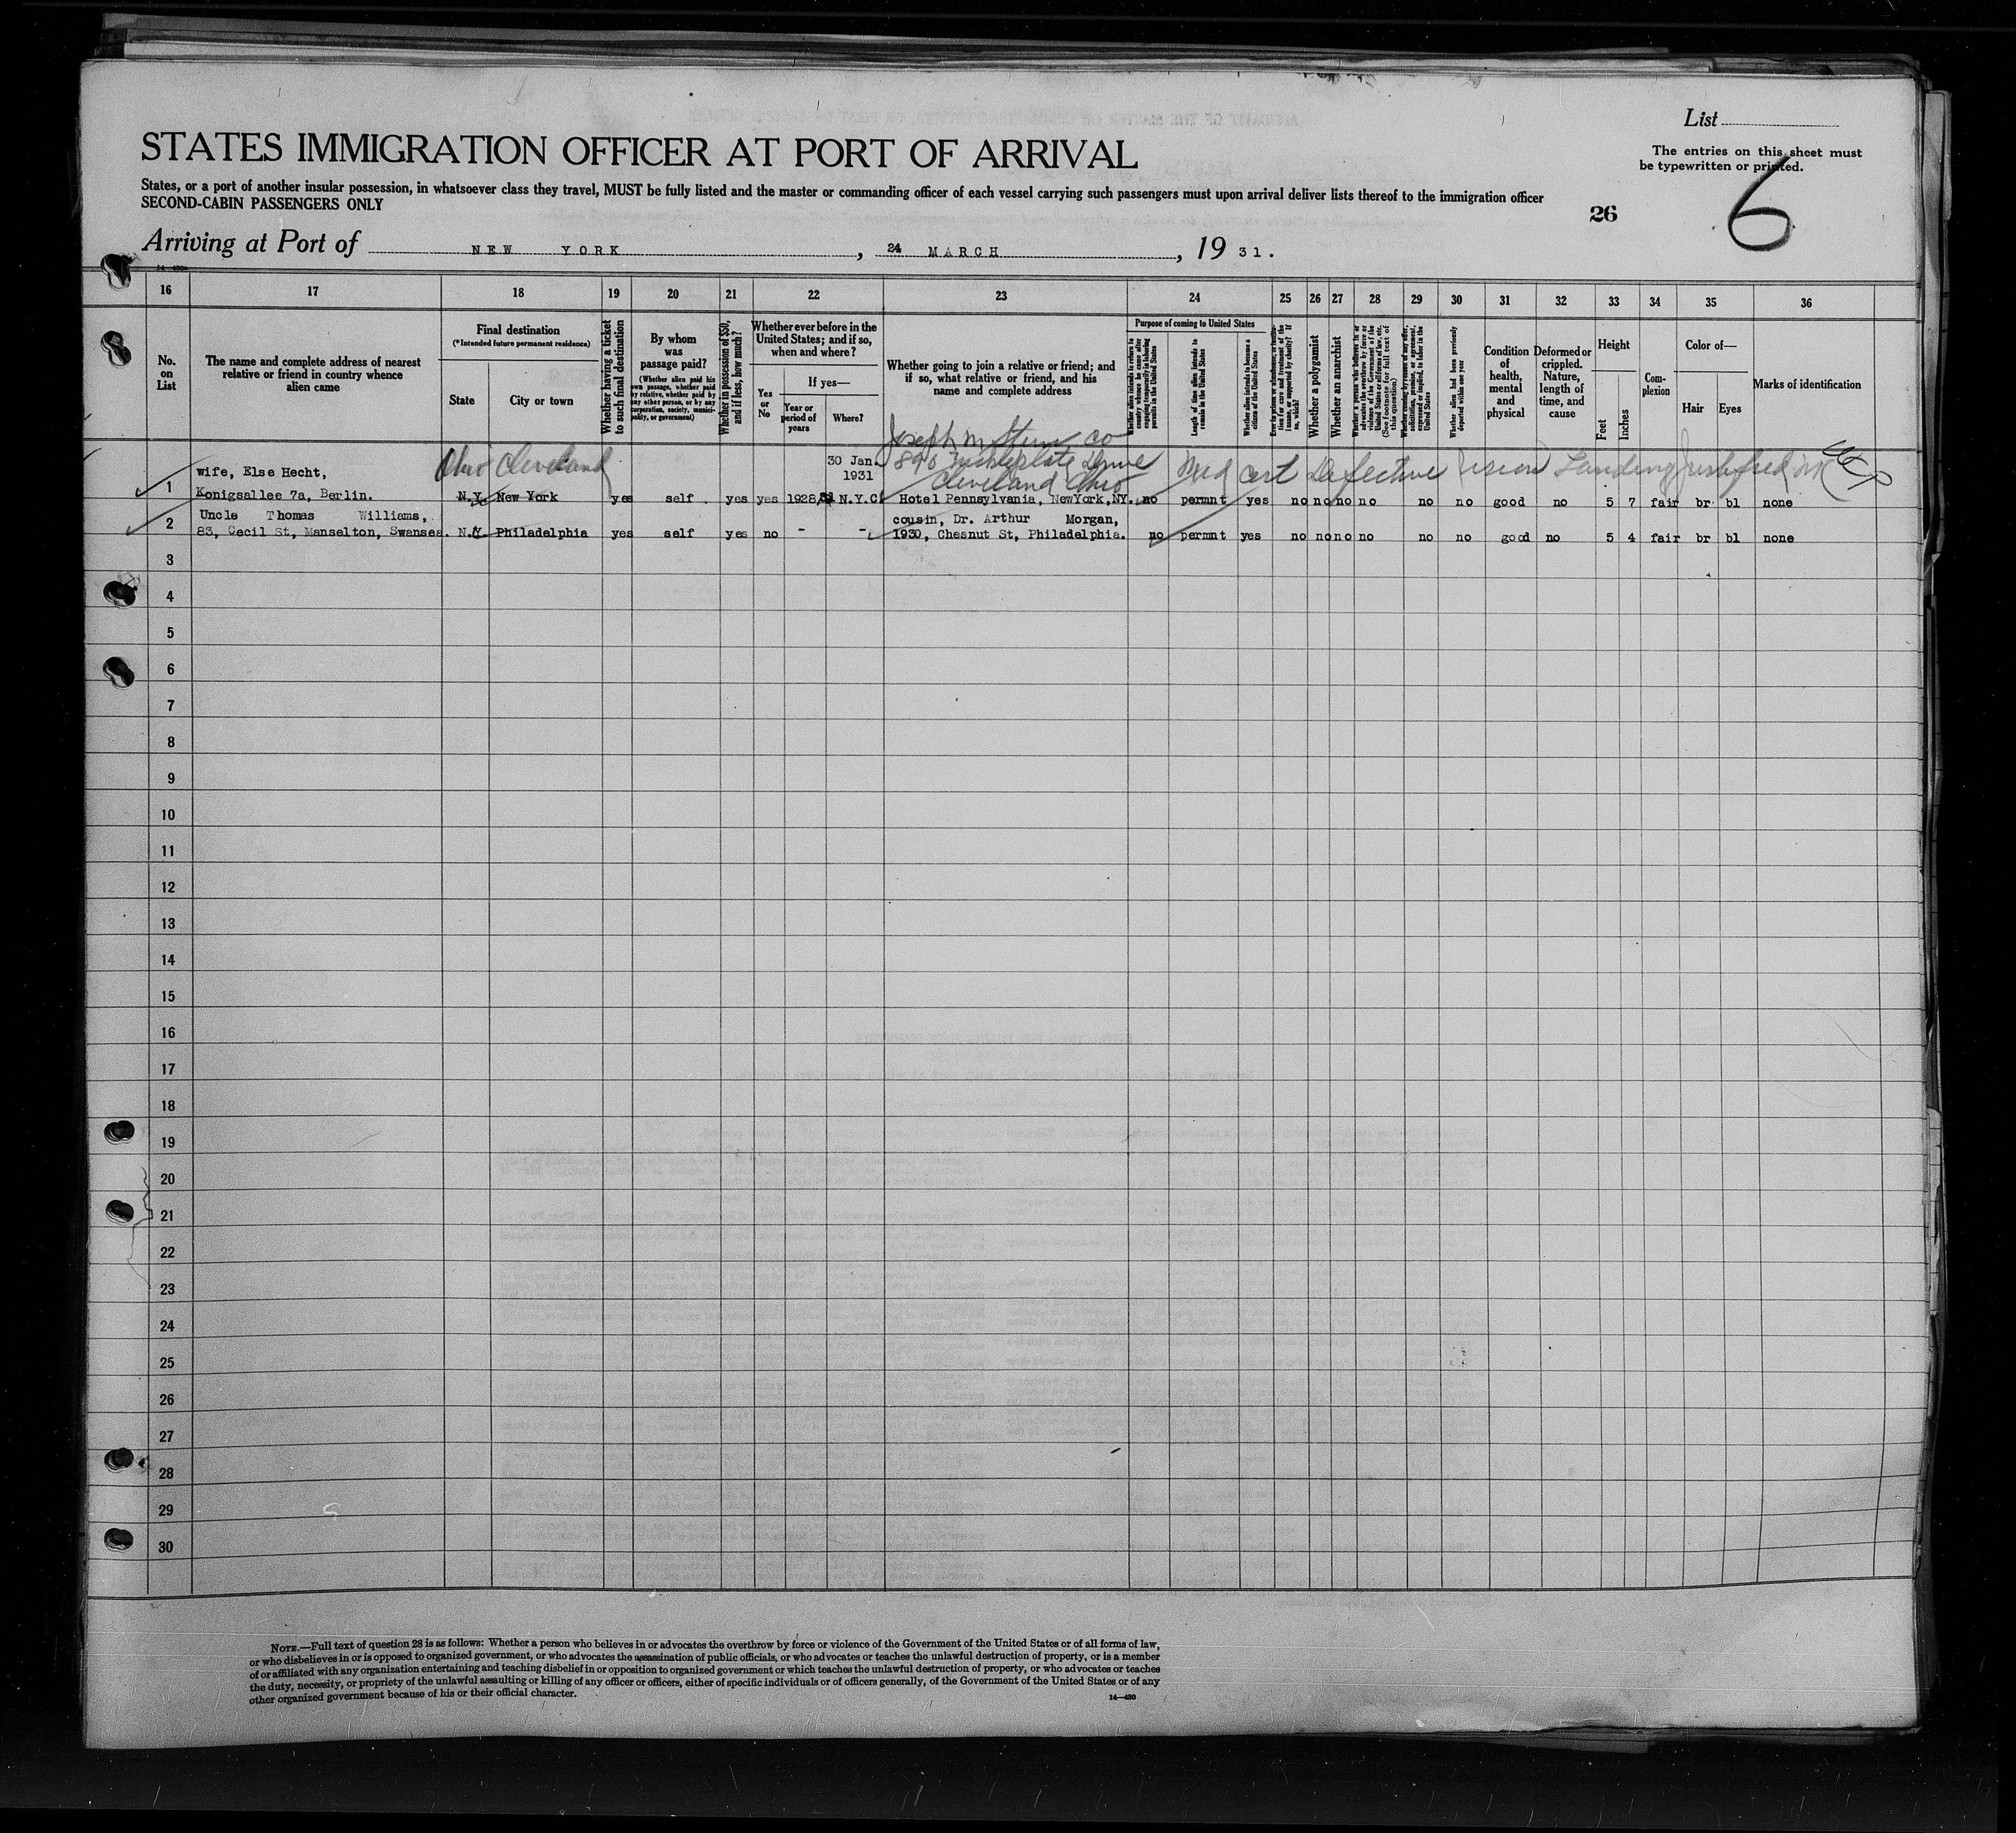 List
STATES IMMIGRATION OFFICER AT PORT OF ARRIVAL
The entries on this sheet must
be typewritten or printed.
States, or a port of another insular possession, in whatsoever class they travel, MUST be fully listed and the master or commanding officer of each vessel carrying such passengers must upon arrival deliver lists thereof to the immigration officer
SECOND-CABIN PASSENGERS ONLY
26
6
Arriving at Port of NEW YORK, 24 MARCH, 1931.
16 17 18 19 20 21 22 23 24 25 26 27 28 29 30 31 32 33 34 35 36
No. on List
The name and complete address of nearest relative or friend in country whence alien came
Final destination
(*Intended future permanent residence)
State
City or town
Whether having a ticket to such final destination
By whom was passage paid?
(Whether alien paid his own passage, whether paid by relative, whether paid by any other person, or by any corporation, society, municipality, or government)
Whether in possession of $50, and if less, how much?
Whether ever before in the United States; and if so, when and where?
Yes or No
If yes—
Year or period of years
Where?
Whether going to join a relative or friend; and if so, what relative or friend, and his name and complete address
Purpose of coming to United States
Whether alien intends to return to country whence he came after engaging temporarily in laboring pursuits in the United States
Length of time alien intends to remain in the United States
Whether alien intends to become a citizen of the United States
Whether a polygamist
Whether an anarchist
(See footnote for full text of this question)
Whether alien had been previously deported within one year
Condition of health, mental and physical
Deformed or crippled. Nature, length of time, and cause
Height
Feet
Inches
Com-plexion
Color of—
Hair
Eyes
Marks of identification
Joseph M Stern Co
Ohio Cleveland
30 Jan.
1931
Cleveland Ohio
Med cert Defective vision Landing
1 wife, Else Hecht,
Konigsallee 7a, Berlin. N.Y. New York yes self yes yes 1928, N.Y.C. Hotel Pennsylvania, NewYork, NY. no permnt yes no no no no no no good no 5 7 fair br bl none
2 Uncle Thomas Williams, cousin, Dr. Arthur Morgan,
83, Cecil St, Manselton, Swansea. N.Y. Philadelphia yes self yes no - - 1930, Chesnut St, Philadelphia. no permnt yes no no no no no no good no 5 4 fair br bl none
3
4
5
6
7
8
9
10
11
12
13
14
15
16
17
18
19
20
21
22
23
24
25
26
27
28
29
30
NOTE.—Full text of question 28 is as follows: Whether a person who believes in or advocates the overthrow by force or violence of the Government of the United States or of all forms of law,
or who disbelieves in or is opposed to organized government, or who advocates the assassination of public officials, or who advocates or teaches the unlawful destruction of property, or is a member
of or affiliated with any organization entertaining and teaching disbelief in or opposition to organized government or which teaches the unlawful destruction of property, or who advocates or teaches
the duty, necessity, or propriety of the unlawful assaulting or killing of any officer or officers, either of specific individuals or of officers generally, of the Government of the United States or of any
other organized government because of his or their official character.
14—430